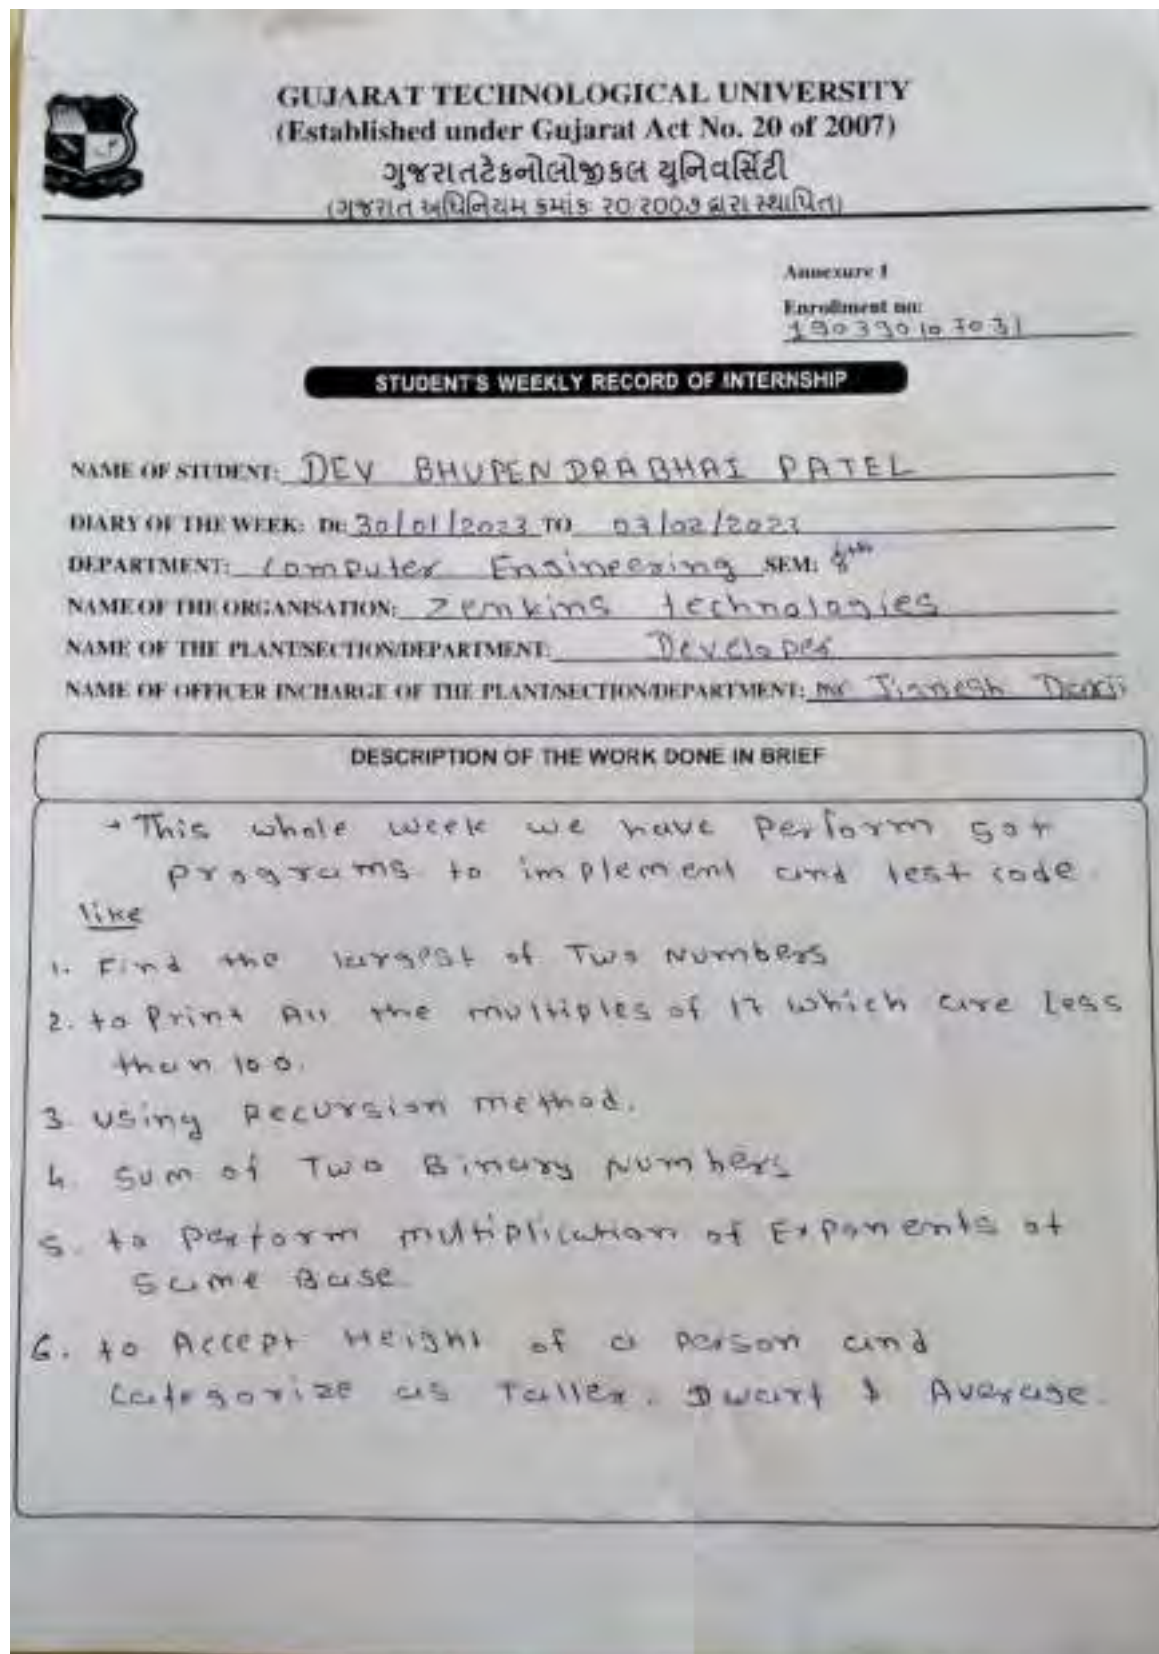 GUJARAT TECHNOLOGICAL UNIVERSITY
(Established under Gujarat Act No. 20 of 2007)
ગુજરાતટેકનોલોજીકલ યુનિવર્સિટી
(ગુજરાત અધિનિયમ ક્રમાંક: ૨૦/૨૦૦૭ દ્વારા સ્થાપિત)
Annexure 1
Enrollment no:
190390107031
STUDENT'S WEEKLY RECORD OF INTERNSHIP
NAME OF STUDENT: DEV BHUPENDRABHAI PATEL
DIARY OF THE WEEK: Dt: 30/01/2023 TO 03/02/2023
DEPARTMENT: Computer Engineering SEM: 8th
NAME OF THE ORGANISATION: Zemkins technologies
NAME OF THE PLANT/SECTION/DEPARTMENT: Developer
NAME OF OFFICER INCHARGE OF THE PLANT/SECTION/DEPARTMENT: Mr Jignesh
DESCRIPTION OF THE WORK DONE IN BRIEF
→ This whole week we have perform
programs to implement and test code
like
1. Find the largest of Two Numbers
2. to Print All the multiples of 17 which are Less
than 100.
3. Using Recursion method.
4. Sum of Two Binary Numbers
5. to Perform multiplication of Exponents of
Same Base
6. to Accept Height of a person and
Categorize as Taller, Dwarf & Average.